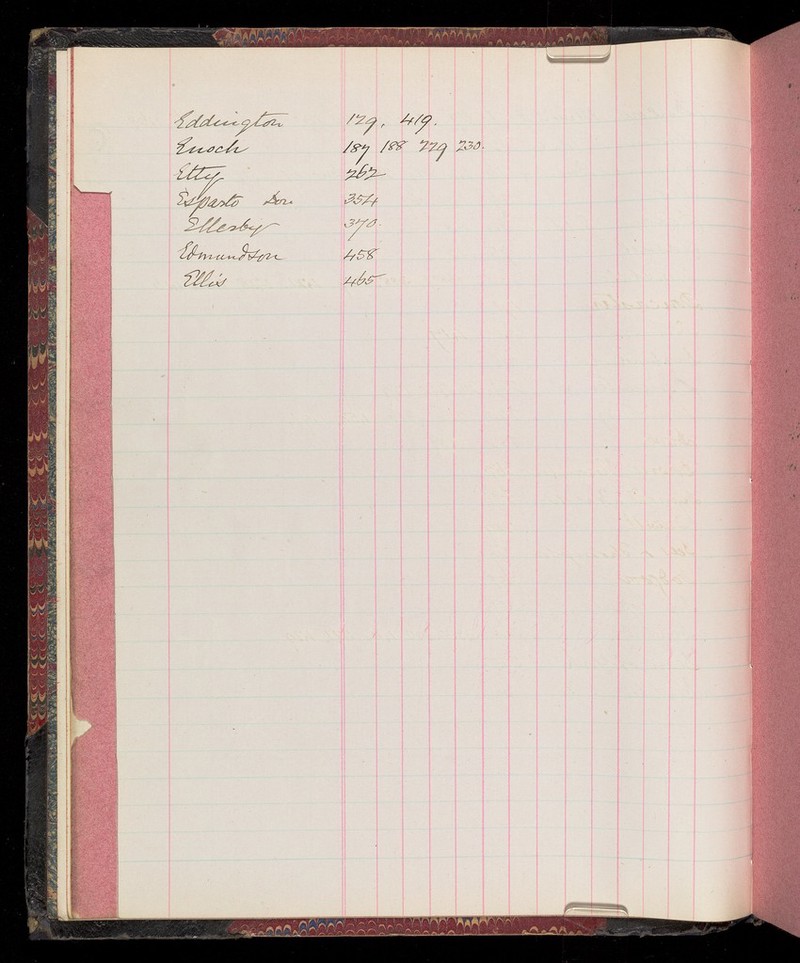 Eddington 129, 419.
Enoch 187 188 229 230.
Etty 262
Esparto Don 354
Ellesby 370.
Edmundson 458
Ellis 465